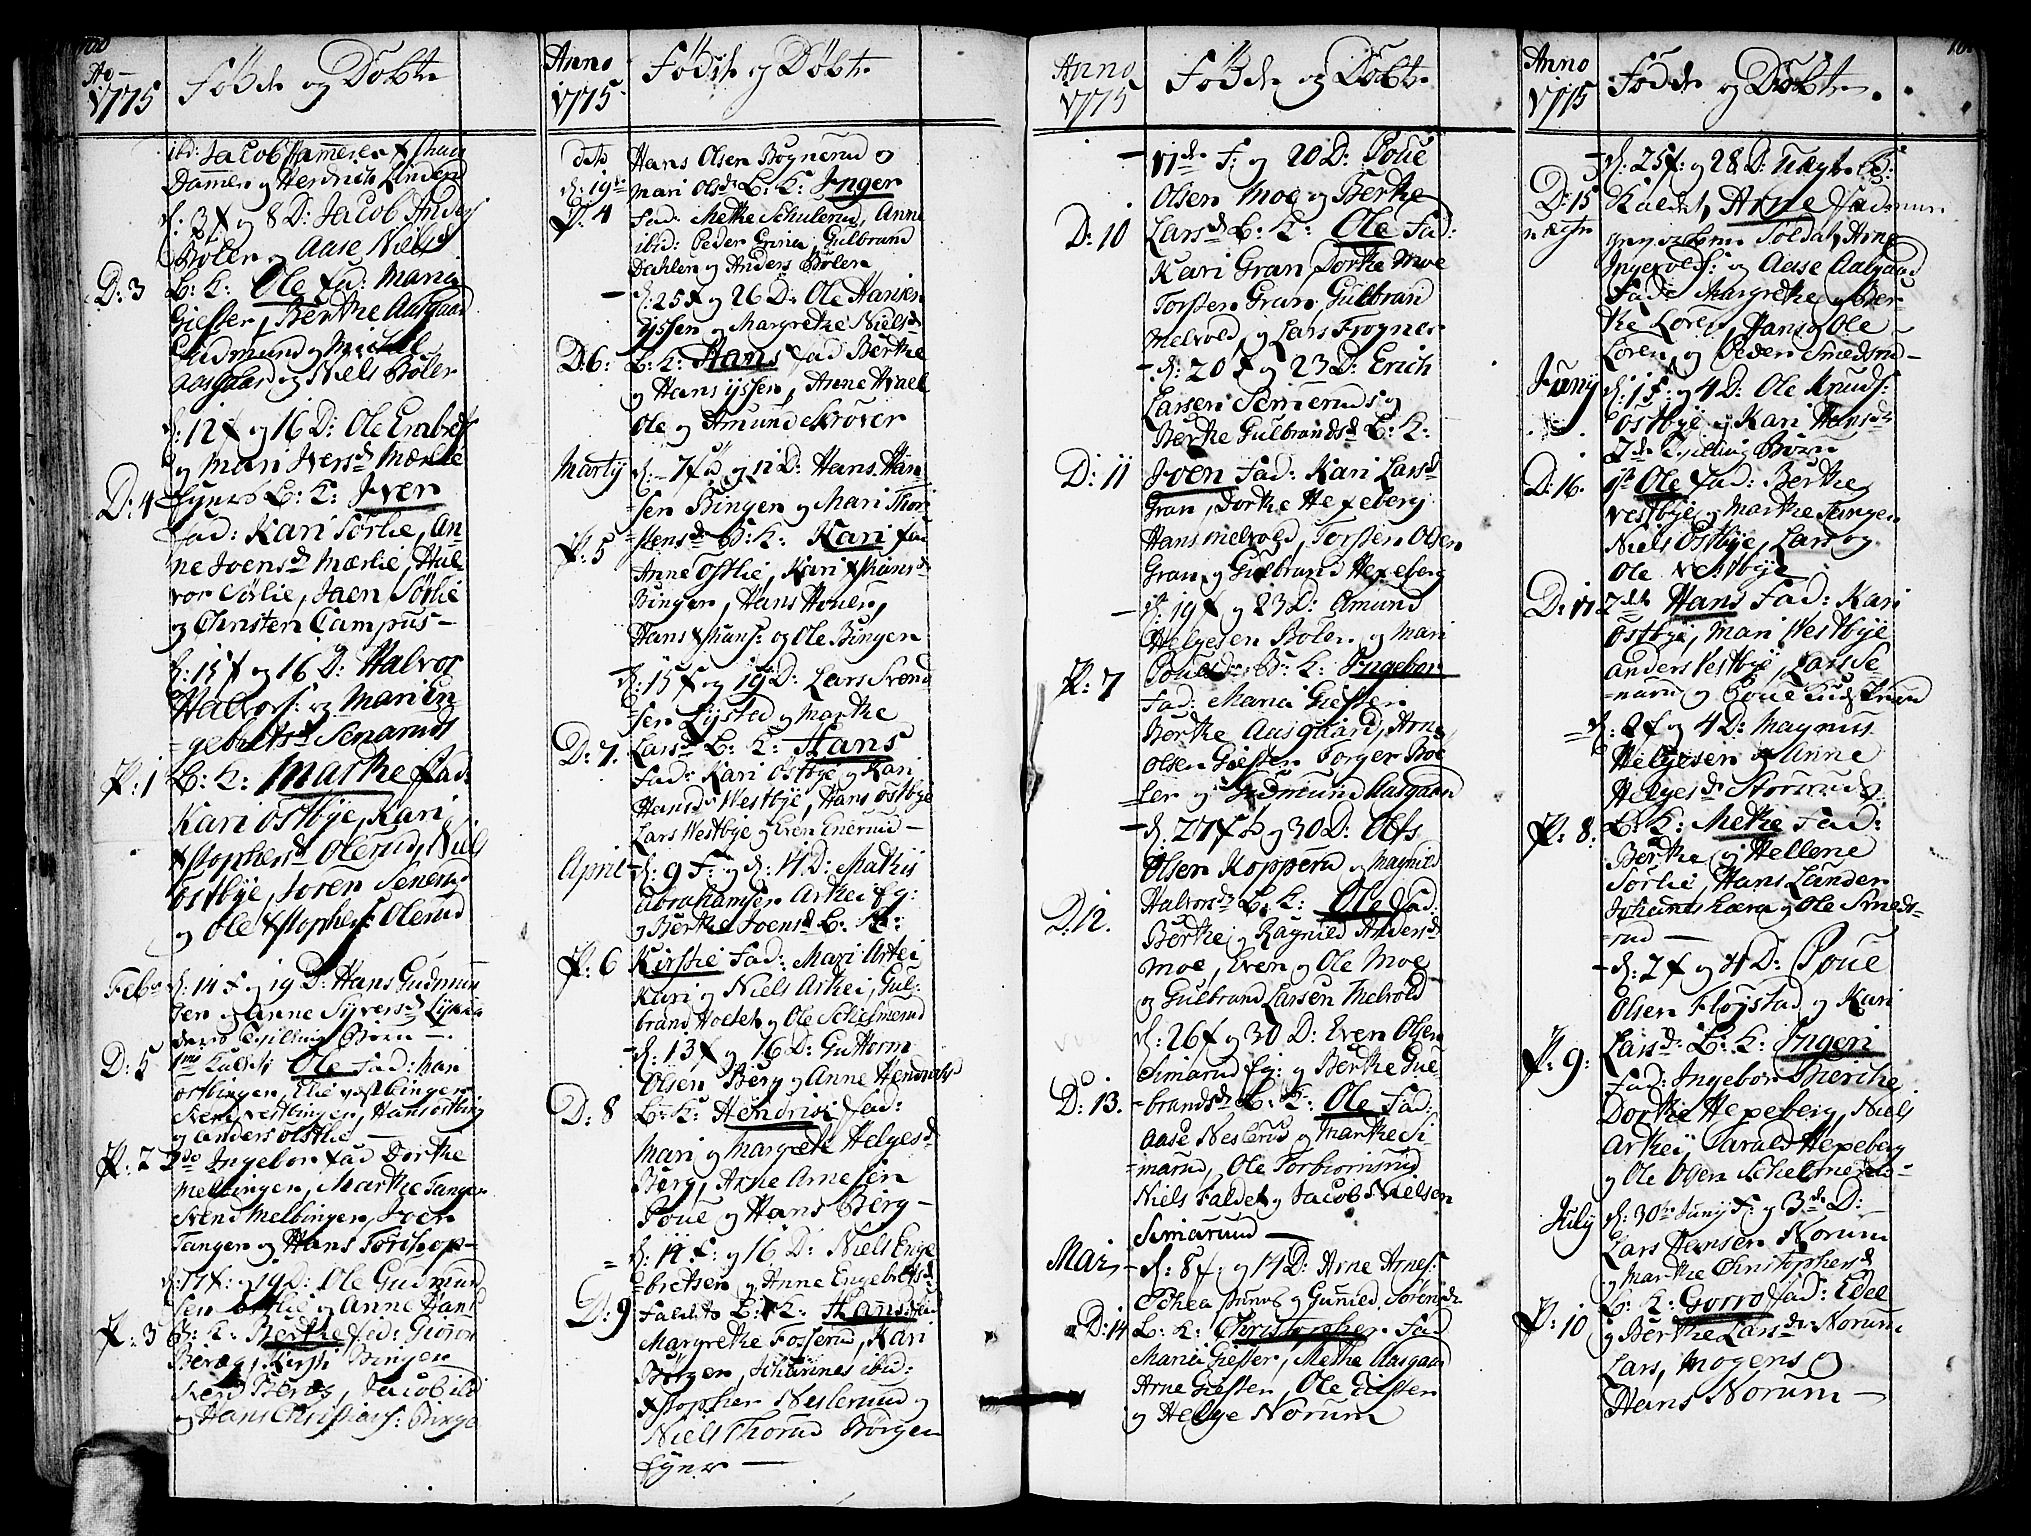 Ao 1775
Fødde og Døbte
ibd: Jacob
Dammen og Hendrich Linden
d: 3 f og 8 D: Jacob Anders
Bølen og Aase Nielsd
D: 3 B: K: Ole fad: Maria
Giefler, Berthe Aasgaard
Gudmund og Michel
Aasgaard og Niels Bølen
d: 12 f og 16 D: Ole
og Mari Iversd Mærlie
D: 4 B: K: Iver
fad: Kari Sørlie, An-
ne Joensd Mærlie, Hal-
vor Sørlie, Joen Sørlie
og Christen Campus-
d: 15 f og 16 D: Halvor
Halvors: og Mari En-
gebretsd Senerud
P: 1 B: K: Marthe fad:
Kari Østbye, Kari
Xstophersd Olerud, Niels
Østbye, Soren Senerud
og Ole Xstophers: Olerud
Feb: d: 14 f og 19 D: Hans Gudmun
sen og Anne Syversd
deres Tvilling Børn -
D: 5 1mo Kaldet Ole fad: Mari
Østbingen, Elie Vestbingen
Svend Vestbingen, Hans Østbing
og Anders Østlie -
P: 2 2do Ingebor fad Dorthe
Melbingen, Marthe Tangen
Svend Melbingen, Joen
Tangen og Hans
d: 17 f: og 19 D: Ole Gudmund
sen Østlie og Anne Hans
P: 3 B: K: Berthe fad: Giøron
Berg, Kirsti Bingen
Svend Berg, Jacob ibd
og Hans Christians: Binge
Anno 1775
Fødde og Døbte
dito Hans Olsen Bognerud og
d: 19 Mari Olsd B: K: Inger
P: 4 fad: Methe Schulerud, Anne
ibid: Peder, Gulbrand
Dahlen og Anders Bølen
- d: 25 f og 26 D: Ole Hansen
ijssen og Margrethe Nielsd
D: 6: B: K: Hans fad Berthe
og Hans ijssen, Anne Hvall
Ole og Amund Skrøver
Martij d: 7 f og 12 D: Hans Han-
sen Bingen og Mari Thor
P: 5 stensd B: K: Kari fad
Anne Østlie, Kari Xstiansd
Bingen, Hans Houen,
Hans Xstians: og Ole Bingen
- d: 15 f og 19 D: Lars Svend
sen Lystad og Marthe
D: 7. Larsd B: K: Hans
fad: Kari Østbye og Kari
Hansd Westbye, Hans Østbye
Lars Westbye og Even Enerud -
April - d: 9 f: og d: 14 D: Mathis
Abrahamsen Arthei Eg:
og Berthe Joensd B: K:
P: 6 Kirstie fad: Mari Artei
Kari og Niels Arthei, Gul-
brand Holet og Ole Schelmerud
- d: 13 f og 16 D: Guttorm
Olsen Berg og Anne
D: 8 B: K: Hendrich fad:
Mari og Margrethe Helgesd
Berg, Arne Arnesen
Poue og Hans Berg -
= d: 14 f: og 16 D: Niels Enge
bretsen og Anne Engebretsd
D: 9 Faldet B: K: Hans fad
Margrethe Fosserud, Kari
Børgen, Johannes ibid:
Xstopher Neslerud og
Niels Thorud Børgen
Eyer -
Anno 1775
Fødde og Døbte
- 17de f: og 20 D: Poue
Olsen Moe og Berthe
D: 10 Larsd B: K: Ole fad:
Kari Gran, Dorthe Moe
Torsten Gran, Gulbrand
Melvold, og Lars Frogner
- d: 20 f og 23 D: Erich
Larsen Semerud og
Berthe Gulbrandsd B: K:
D: 11 Joen fad: Kari Larsd
Gran, Dorthe Hexeberg
Hans Melvold, Torsten Olsen
Gran og Gulbrand Hexeberg
- d: 19 f og 23 D: Amund
Helgesen Bølen og Mari
P: 7 Pouelsd B: K: Ingebor
fad: Maria Giefler
Berthe Aasgaard, Arne
Olsen Giefler, Torger Bøe
ler og Gudmund Aasgaard
- d: 27 f og 30 D: Ols
Olsen Kopperud og Magnild
D: 12. Halvorsd B: K: Ole fad:
Berthe og Ragnild Andersd
Moe, Even og Ole Moe
og Gulbrand Larsen Melvold
d: 26 f og 30 D: Even Olsen
Simarud Eg: og Berthe Gul
D: 13. -brandsd B: K: Ole fad:
Aase Neslerud og Marthe Si-
=marud, Ole Torbiornsrud
Niels Faldet og Jacob Nielsen
Simarud -
Mai - d: 8 f: og 14 D: Arne Arnes:
og Gunild Sørensd
D: 14 B: K: Christopher fad
Maria Giefler, Methe Aasgaard
Arne Giefler, Ole Giefler
og Helge Norum
Anno 1775
Fødde og Døbte
- d: 25 f: og 28 D: Uægte B:
D: 15 Kaldet Arne
uægte Soldat Arne
Ingevolds: og Aase Aasgaard
Fadd: Margrethe og Ber-
the Loren, Hans og Ole
Loren, og Peder Smedsrud -
Junij d: 1 f: og 4 D: Ole Knuds:
Østbye og Kari Hansd
2de Tvilling Børn
D: 16. 1te Ole fad: Berthe
Vestbye og Marthe Tangen
Niels Østbye, Lars og
Ole Vestbye
D: 17 2det Hans fad: Kari
Østbye, Mari Westbye
Anders Vestbye, Lars Se
=narud og Poue
= d: 2 f og 4 D: Magnus
Helgesen og Anne
Helgesd Storerud
P: 8. B: K: Methe fad:
Berthe og Hellene
Sørlie, Hans Landen
Johannes og Ole Smeds-
=rud -
- d: 2 f og 4 D: Poue
Olsen Fløystad og Kari
P: 9: Larsd: B: K: Ingeri
fad: Ingebor Bierche
Dorthe Hexeberg, Niels
Arthei, Harald Hexeberg
og Ole Olsen Schelmerud -
July d: 30te Junij f: og 3de D: -
Lars Hansen Norum
og Marthe Christophersd
P: 10 B: K: Gorro fad: Edel
og Berthe Larsd Norum
Lars, Mogens og
Hans Norum -